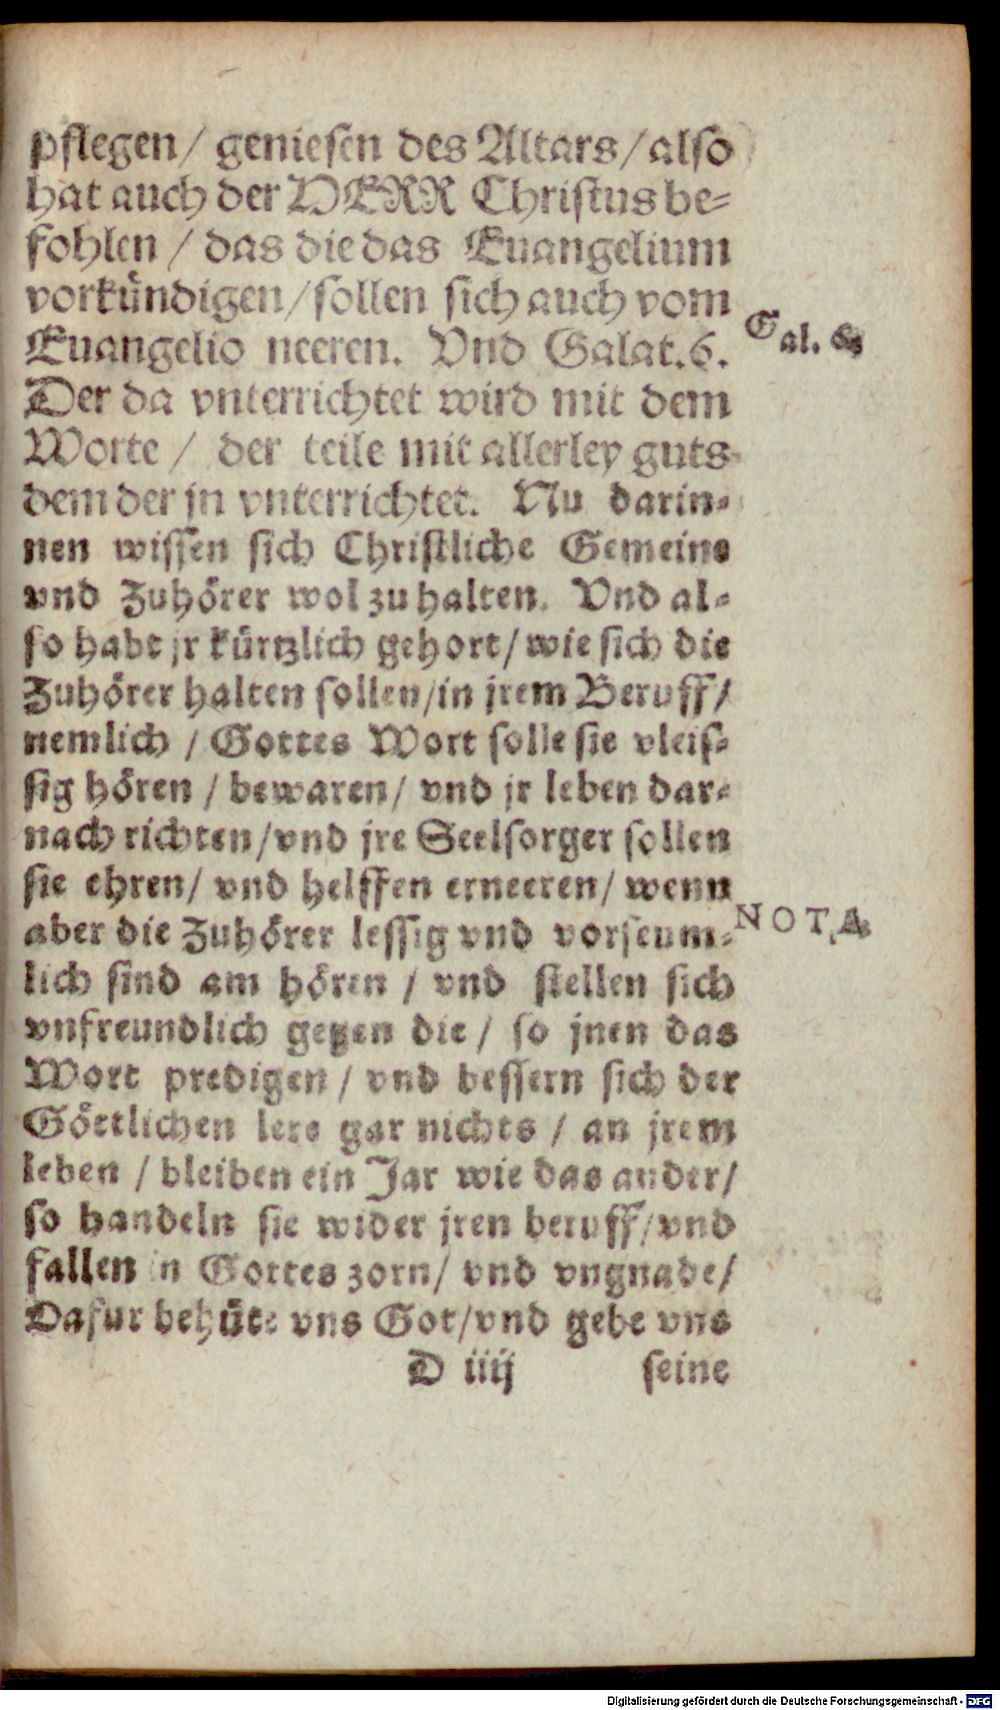 pflegen / geniesen des Altars / also
hat auch der HERR Christus be-
fohlen / das die das Euangelium
vorkündigen / sollen sich auch vom
Euangelio neeren. Vnd Galat. 6.
Gal. 6.
Der da vnterrichtet wird mit dem
Worte / der teile mit allerley guts
dem der jn vnterrichtet. Nu darin-
nen wissen sich Christliche Gemeine
vnd Zuhörer wol zu halten. Vnd al-
so habt jr kürtzlich gehort / wie sich die
Zuhörer halten sollen / in jrem Beruff /
nemlich / Gottes Wort solle sie vleis-
sig hören / bewaren / vnd jr leben dar-
nach richten / vnd jre Seelsorger sollen
sie ehren / vnd helffen erneeren / wenn
aber die Zuhörer lessig vnd vorseum-
NOTA
lich sind am hören / vnd stellen sich
vnfreundlich gegen die / so jnen das
Wort predigen / vnd bessern sich der
Göttlichen lere gar nichts / an jrem
leben / bleiben ein Jar wie das ander /
so handeln sie wider jren beruff / vnd
fallen in Gottes zorn / vnd vngnade /
Dafur behüte vns Got / vnd gebe vns
D iiij seine
Digitalisierung gefördert durch die Deutsche Forschungsgemeinschaft - DFG